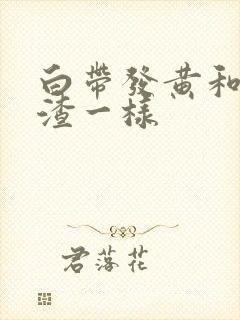 白帶發黃和
渣一樣
君落花